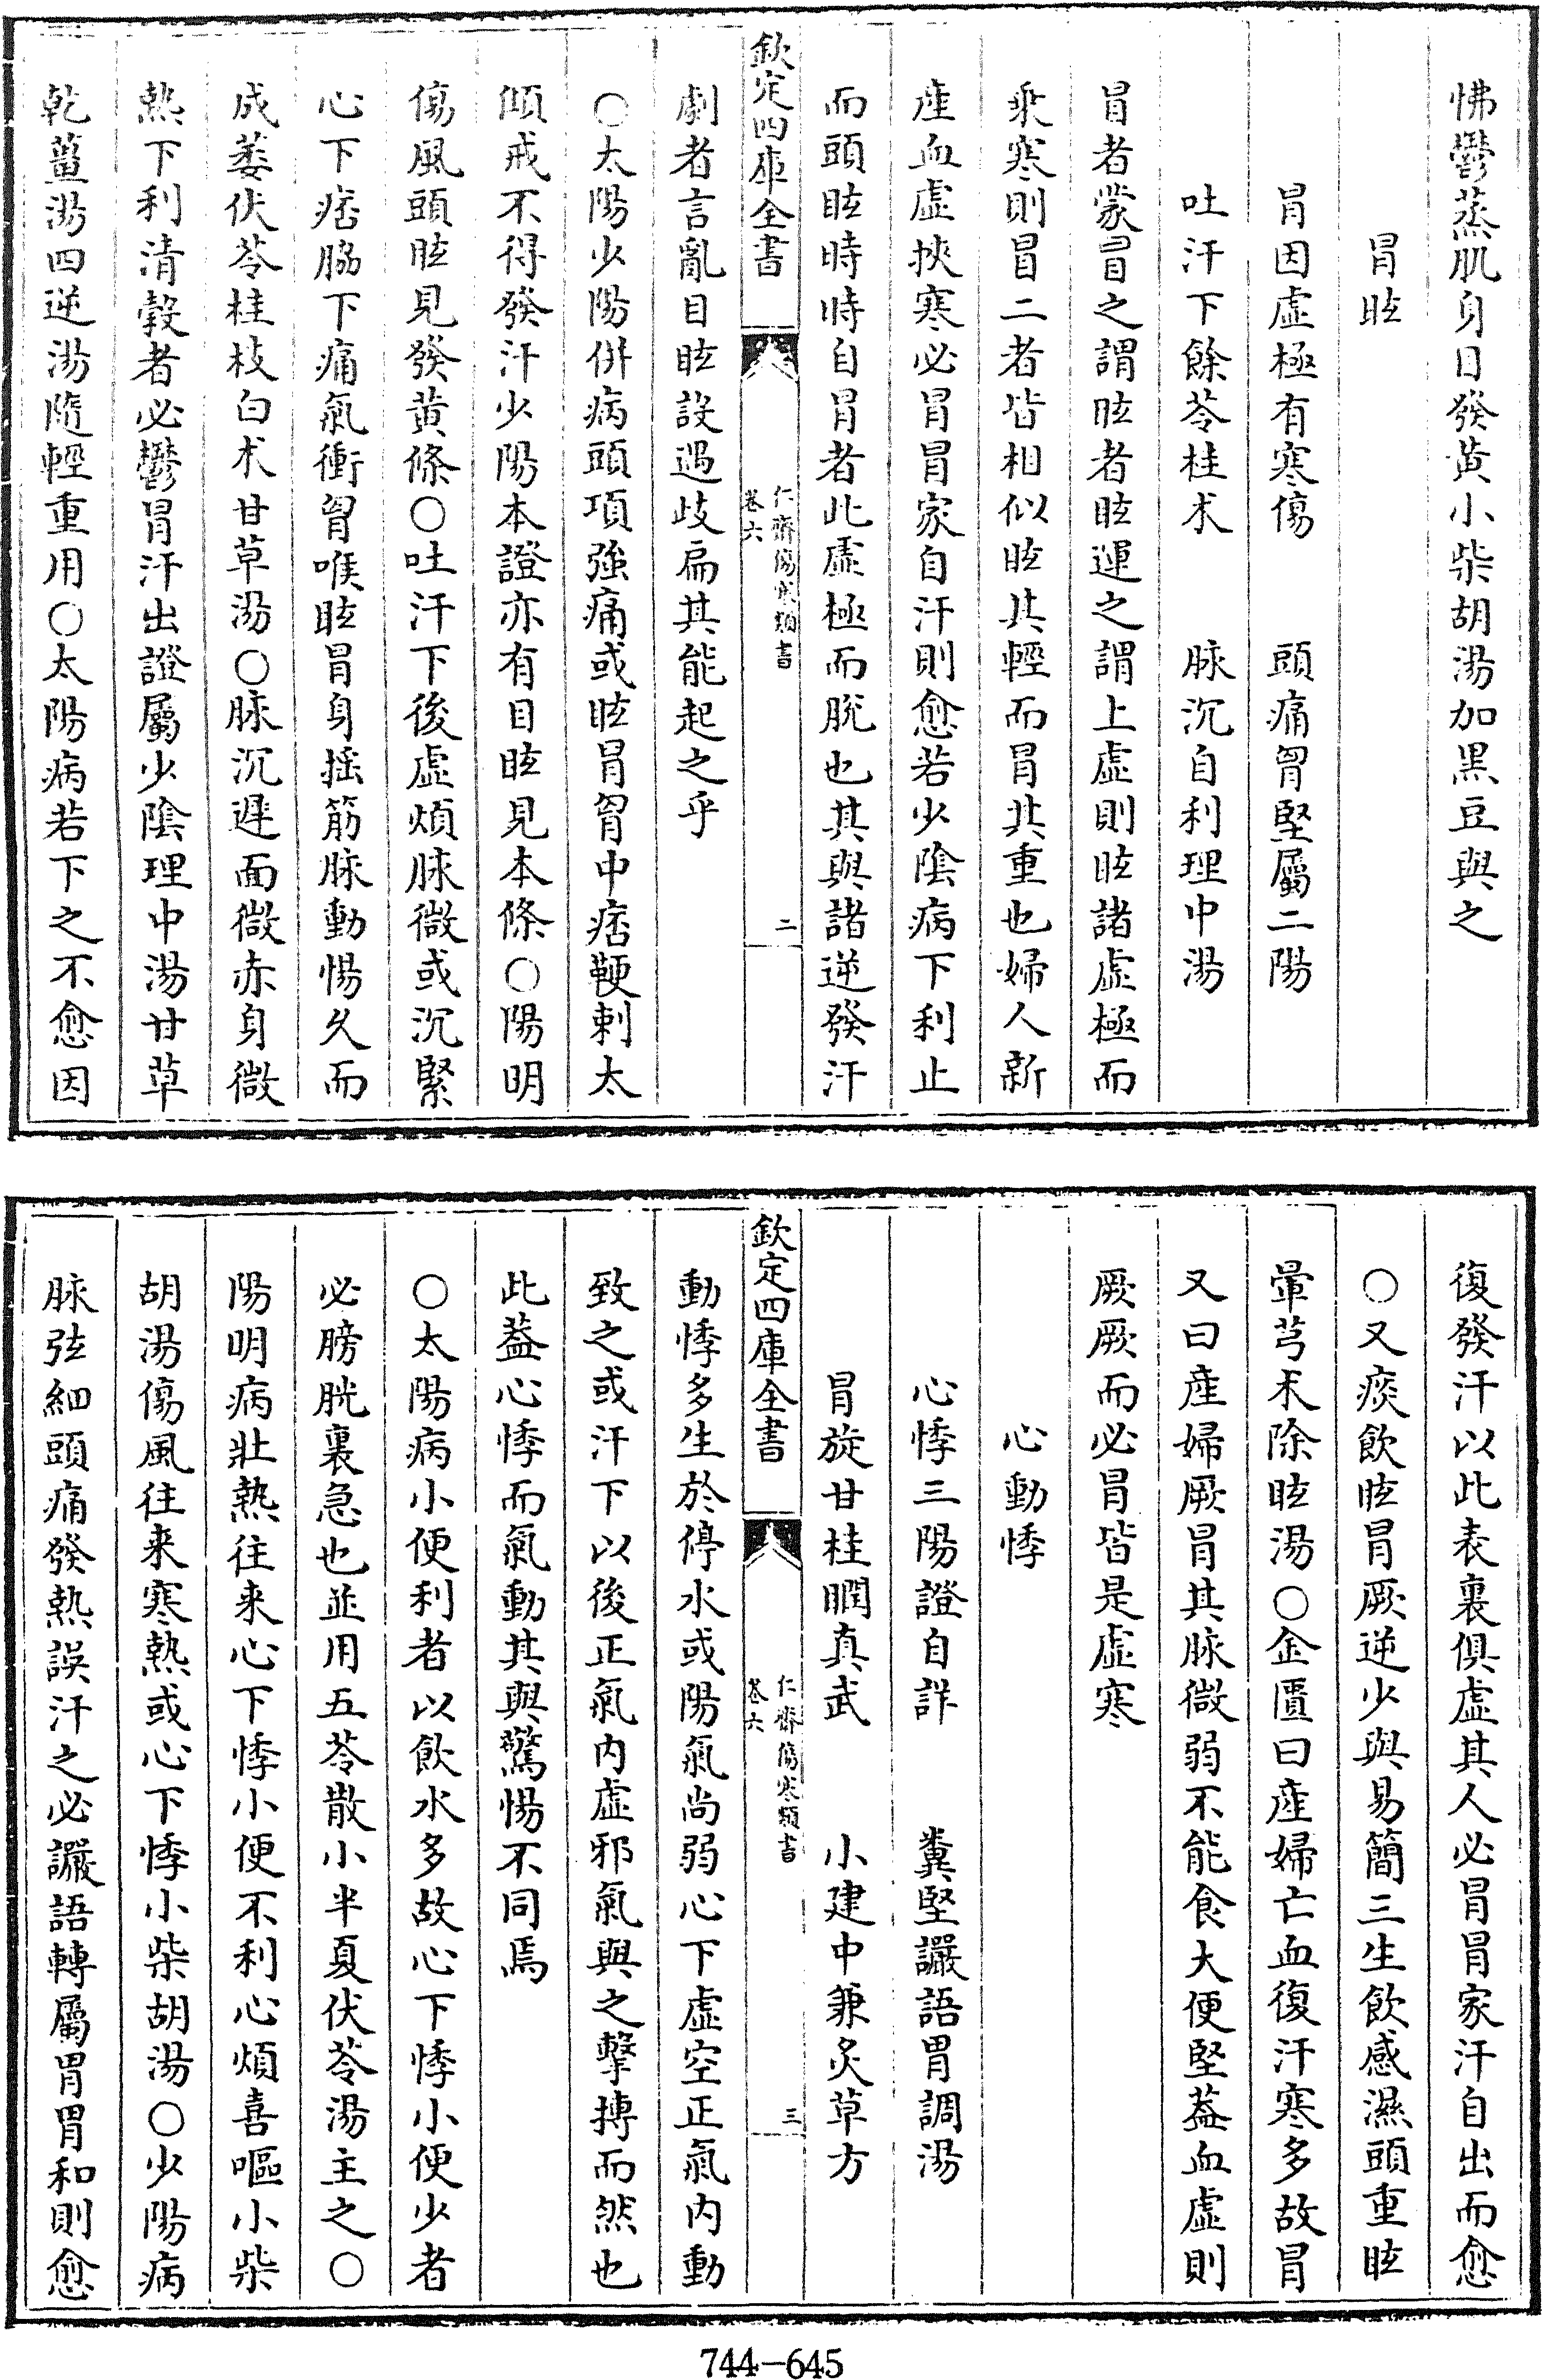 怫鬱蒸肌身目發黄小柴胡湯加黒豆與之
冒眩
冒因虚極有寒傷　頭痛胷堅屬二陽
吐汗下餘苓桂术　脉沉自利理中湯
冒者蒙冒之謂眩者眩運之謂上虚則眩諸虚極而
乘寒則冒二者皆相似眩其輕而冒其重也婦人新
産血虚挾寒必冒冒家自汗則愈若少陰病下利止
而頭眩時時自冒者此虚極而脱也其與諸逆發汗
欽定四庫全書
仁齋傷寒類書
卷六
二
劇者言亂目眩設遇歧扁其能起之乎
○太陽少陽併病頭項強痛或眩冒胷中痞鞕刺太
傾戒不得發汗少陽本證亦有目眩見本條○陽明
傷風頭眩見發黄條○吐汗下後虚煩脉微或沉緊
心下痞脇下痛氣衝胷喉眩冒身揺筋脉動惕久而
成萎伏苓桂枝白术甘草湯○脉沉遲面微赤身微
熱下利清穀者必鬱冒汗出證屬少陰理中湯甘草
乾薑湯四逆湯隨輕重用○太陽病若下之不愈因
復發汗以此表裏俱虚其人必冒冒家汗自出而愈
○又痰飲眩冒厥逆少與易簡三生飲感濕頭重眩
暈芎术除眩湯○金匱曰産婦亡血復汗寒多故冒
又曰産婦厥冒其脉微弱不能食大便堅葢血虚則
厥厥而必冒皆是虚寒
心動悸
心悸三陽證自詳　糞堅讝語胃調湯
冒旋甘桂瞤真武　小建中兼炙草方
欽定四庫全書
仁齋傷寒類書
卷六
三
動悸多生於停水或陽氣尚弱心下虚空正氣内動
致之或汗下以後正氣内虚邪氣與之擊搏而然也
此葢心悸而氣動其與驚惕不同焉
○太陽病小便利者以飲水多故心下悸小便少者
必膀胱裏急也並用五苓散小半夏伏苓湯主之○
陽明病壯熱往来心下悸小便不利心煩喜嘔小柴
胡湯傷風往来寒熱或心下悸小柴胡湯○少陽病
脉弦細頭痛發熱誤汗之必讝語轉屬胃胃和則愈
744-645